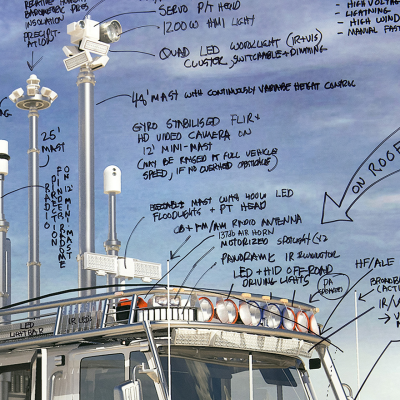 RELATIVE HUMIDITY
BAROMETRIC PRESS
INSOLATION
PRECIPIT-
ATION
SERVO P/T HEAD
1200W HMI LIGHT
QUAD LED WORKLIGHT (IR+VIS)
CLUSTER, SWITCHABLE + DIMMING
- HIGH VOLTAG
- LIGHTNING
- HIGH WIND
- MANUAL FAST
44' MAST WITH CONTINUOUSLY VARIABLE HEIGHT CONTROL
GYRO STABILISED FLIR +
HD VIDEO CAMERA ON
12' MINI-MAST
(MAY BE RAISED AT FULL VEHICLE
SPEED, IF NO OVERHEAD OBSTACLES)
25'
MAST
RADIO
DIRECTION
FINDER RADOME
ON 12' MINI MAST
ON ROOF
MAST WITH 400W LED
FLOODLIGHTS + PT HEAD
CB + AM/FM RADIO ANTENNA
137dB AIR HORN
MOTORIZED SPOTLIGHT x2
PANORAMIC IR ILLUMINATOR
LED + HID OFF-ROAD
DRIVING LIGHTS
PA
SPEAKER
HF/ALE
BROADBA
IR/V
LED
LIGHTBAR
IR LED